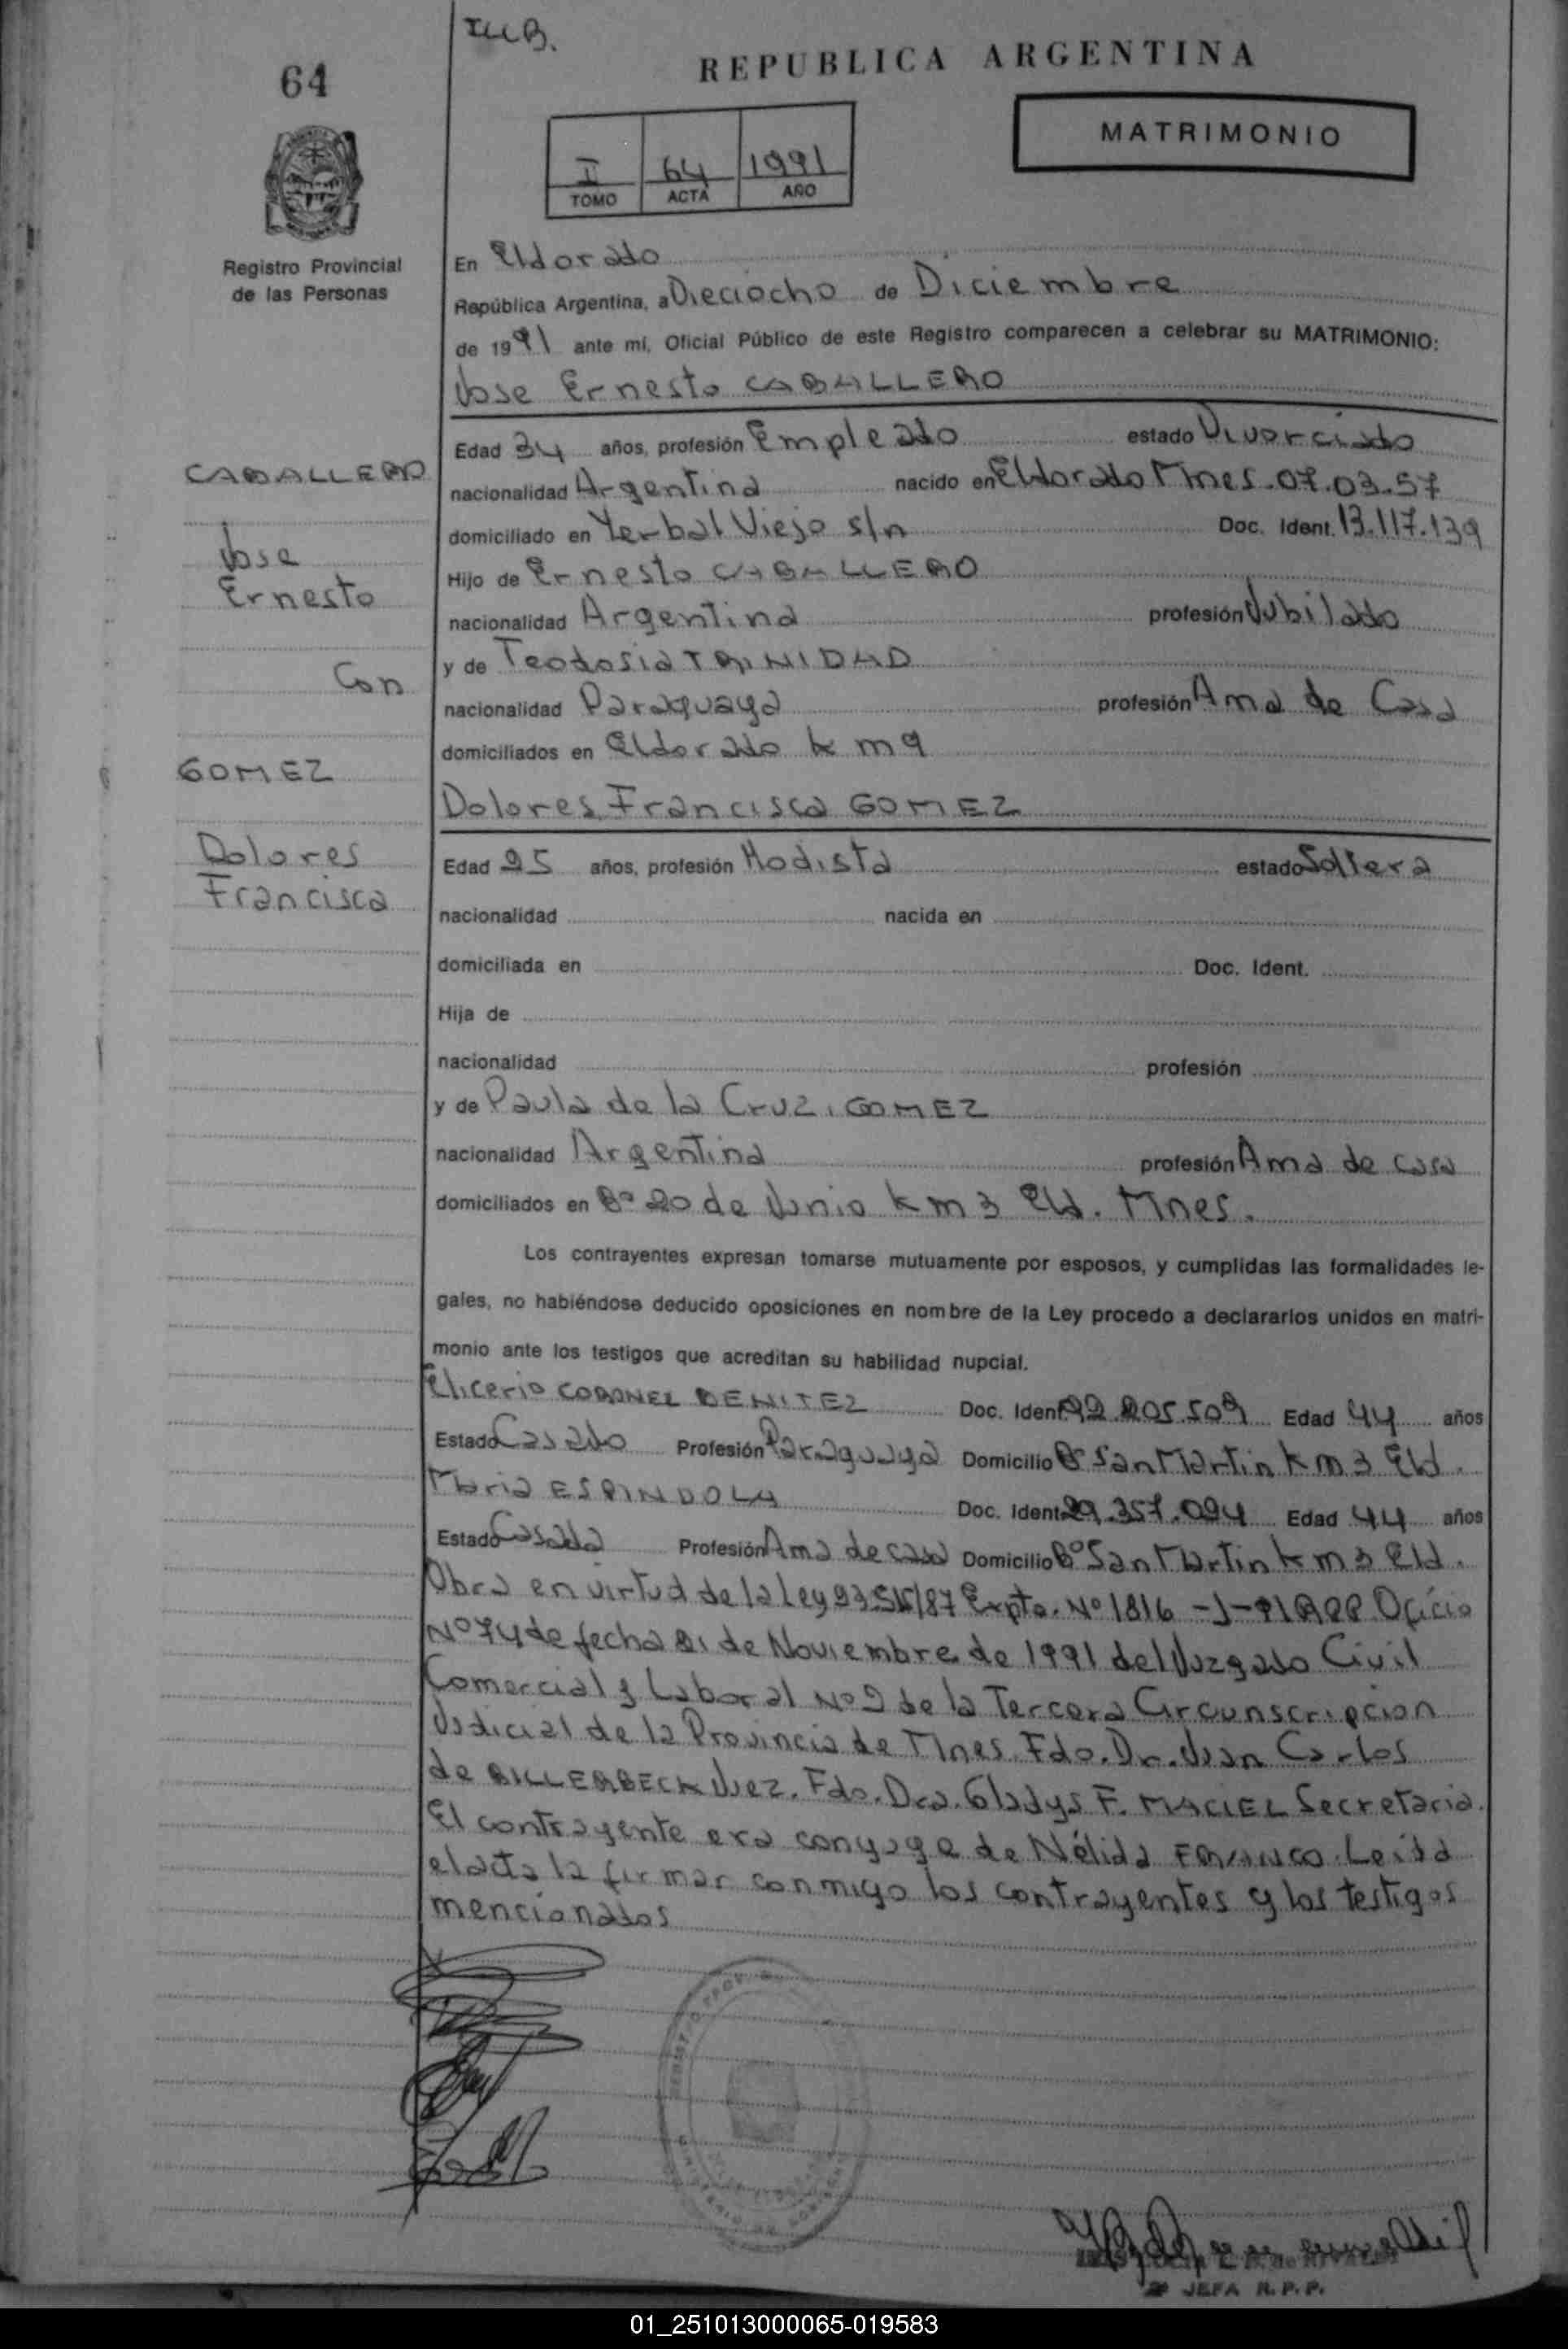 IUB.
64
REPUBLICA ARGENTINA
MATRIMONIO
I 64 1991
TOMO ACTA AÑO
Registro Provincial
de las Personas
En Eldorado
República Argentina, a Dieciocho de Diciembre
de 1991 ante mí, Oficial Público de este Registro comparecen a celebrar su MATRIMONIO:
Jose Ernesto CABALLERO
Edad 34 años, profesión Empleado estado Divorciado
CABALLERO
nacionalidad Argentina nacido en Eldorado Mnes. 07.03.57
domiciliado en Yerbal Viejo s/n Doc. Ident. 13.117.139
Jose
Hijo de Ernesto CABALLERO
Ernesto
nacionalidad Argentina profesión Jubilado
y de Teodosia TRINIDAD
Con
nacionalidad Paraguaya profesión Ama de Casa
domiciliados en Eldorado km 9
GOMEZ
Dolores Francisca GOMEZ
Dolores
Edad 25 años, profesión Modista estado Soltera
Francisca
nacionalidad nacida en
domiciliada en Doc. Ident.
Hija de
nacionalidad profesión
y de Paula de la Cruz GOMEZ
nacionalidad Argentina profesión Ama de casa
domiciliados en B° 20 de Junio km 3 Eld. Mnes.
Los contrayentes expresan tomarse mutuamente por esposos, y cumplidas las formalidades le-
gales, no habiéndose deducido oposiciones en nombre de la Ley procedo a declararlos unidos en matri-
monio ante los testigos que acreditan su habilidad nupcial.
Elicerio CORONEL BENITEZ Doc. Ident. 92.205.509 Edad 44 años
Estado Casado Profesión Paraguaya Domicilio B° San Martin km 3 Eld.
Maria ESPINDOLA Doc. Ident. 29.357.094 Edad 44 años
Estado Casada Profesión Ama de casa Domicilio B° San Martin km 3 Eld.
Obra en virtud de la Ley 23.515/87 Expto. N° 1816 -J-91 RPP Oficio
N° 74 de fecha 21 de Noviembre de 1991 del Juzgado Civil
Comercial y Laboral N° 2 de la Tercera Circunscripcion
Judicial de la Provincia de Mnes. Fdo. Dr. Juan Carlos
de BILLERBECK Juez. Fdo. Dra. Gladys F. MACIEL Secretaria.
El contrayente era conyuge de Nélida FRANCO. Leida
el acta la firman conmigo los contrayentes y los testigos
mencionados
JEFA R.P.P.
01_251013000065-019583